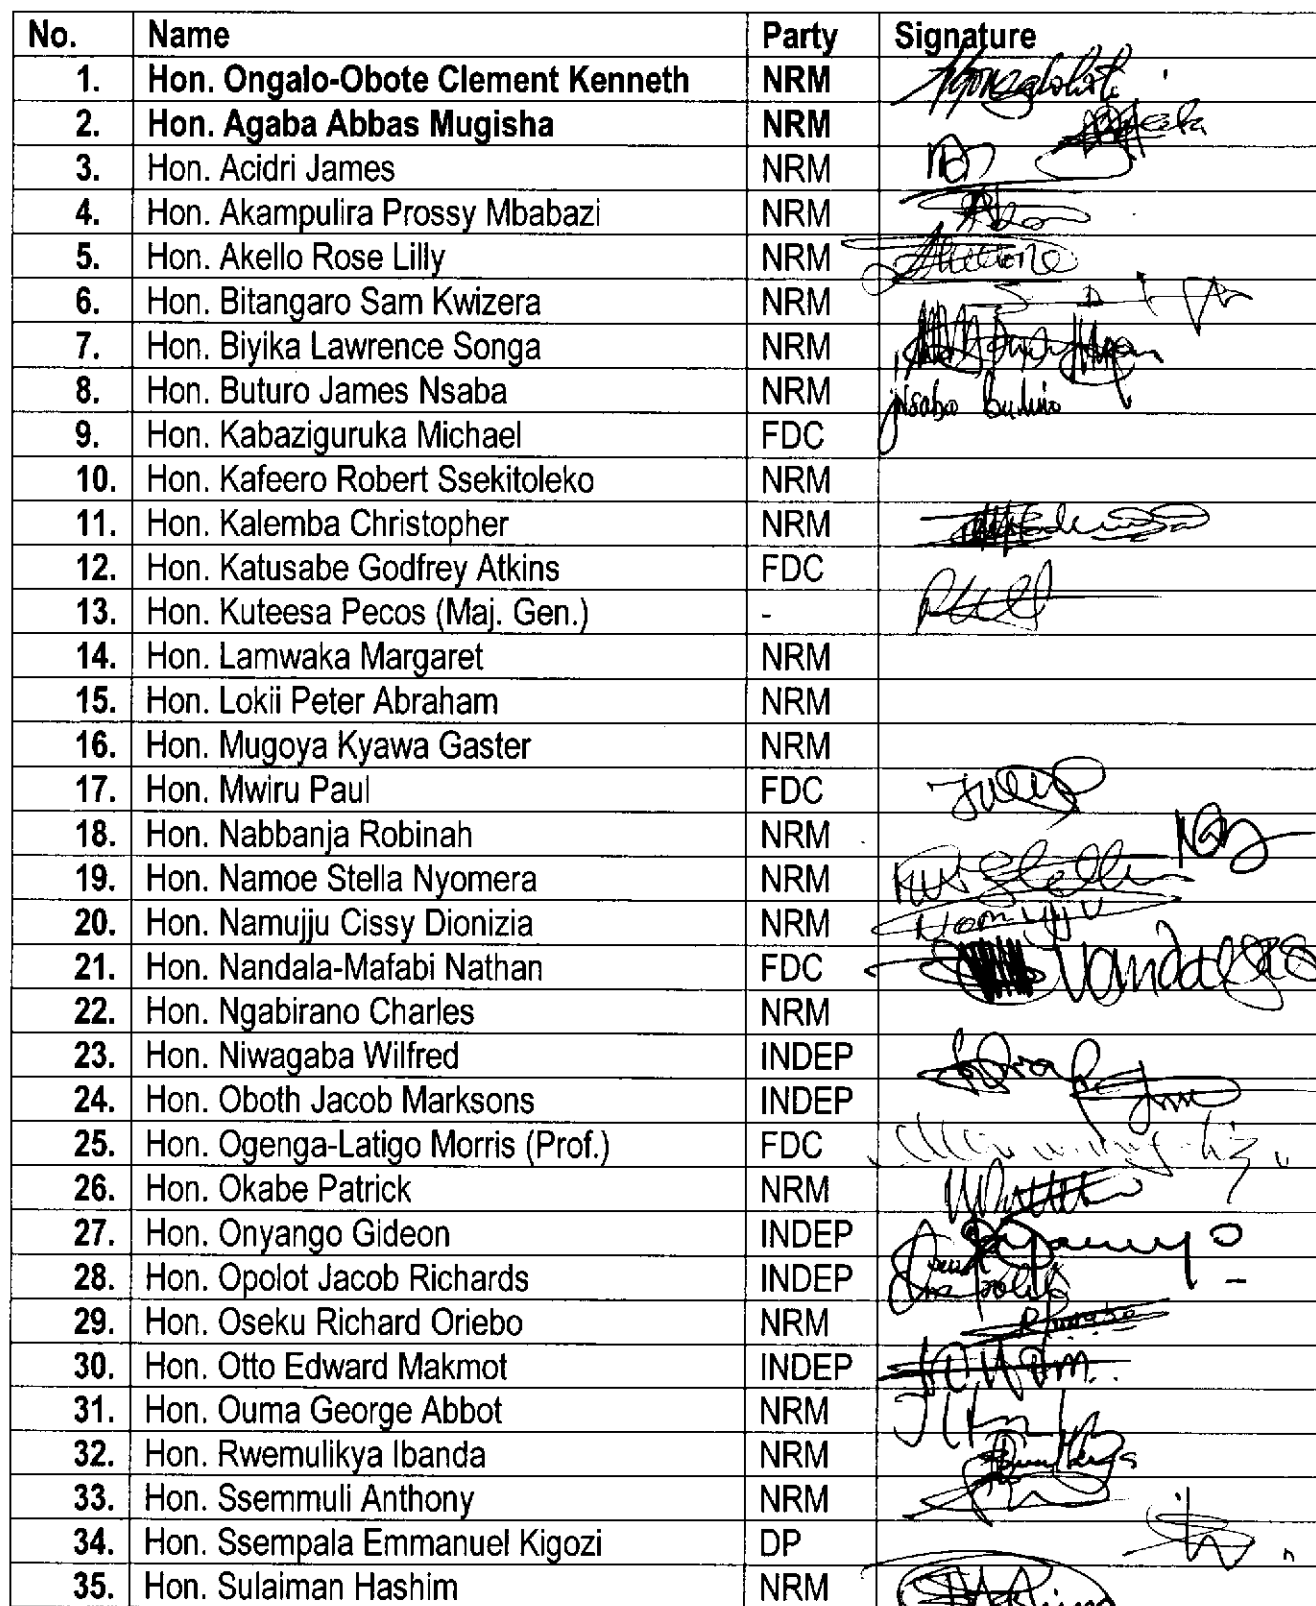 No. Name Party Signature
1. Hon. Ongalo-Obote Clement Kenneth NRM
2. Hon. Agaba Abbas Mugisha NRM
3. Hon. Acidri James NRM
4. Hon. Akampulira Prossy Mbabazi NRM
5. Hon. Akello Rose Lilly NRM
6. Hon. Bitangaro Sam Kwizera NRM
7. Hon. Biyika Lawrence Songa NRM
8. Hon. Buturo James Nsaba NRM
9. Hon. Kabaziguruka Michael FDC
10. Hon. Kafeero Robert Ssekitoleko NRM
11. Hon. Kalemba Christopher NRM
12. Hon. Katusabe Godfrey Atkins FDC
13. Hon. Kuteesa Pecos (Maj. Gen.) -
14. Hon. Lamwaka Margaret NRM
15. Hon. Lokii Peter Abraham NRM
16. Hon. Mugoya Kyawa Gaster NRM
17. Hon. Mwiru Paul FDC
18. Hon. Nabbanja Robinah NRM
19. Hon. Namoe Stella Nyomera NRM
20. Hon. Namujju Cissy Dionizia NRM
21. Hon. Nandala-Mafabi Nathan FDC
22. Hon. Ngabirano Charles NRM
23. Hon. Niwagaba Wilfred INDEP
24. Hon. Oboth Jacob Marksons INDEP
25. Hon. Ogenga-Latigo Morris (Prof.) FDC
26. Hon. Okabe Patrick NRM
27. Hon. Onyango Gideon INDEP
28. Hon. Opolot Jacob Richards INDEP
29. Hon. Oseku Richard Oriebo NRM
30. Hon. Otto Edward Makmot INDEP
31. Hon. Ouma George Abbot NRM
32. Hon. Rwemulikya Ibanda NRM
33. Hon. Ssemmuli Anthony NRM
34. Hon. Ssempala Emmanuel Kigozi DP
35. Hon. Sulaiman Hashim NRM